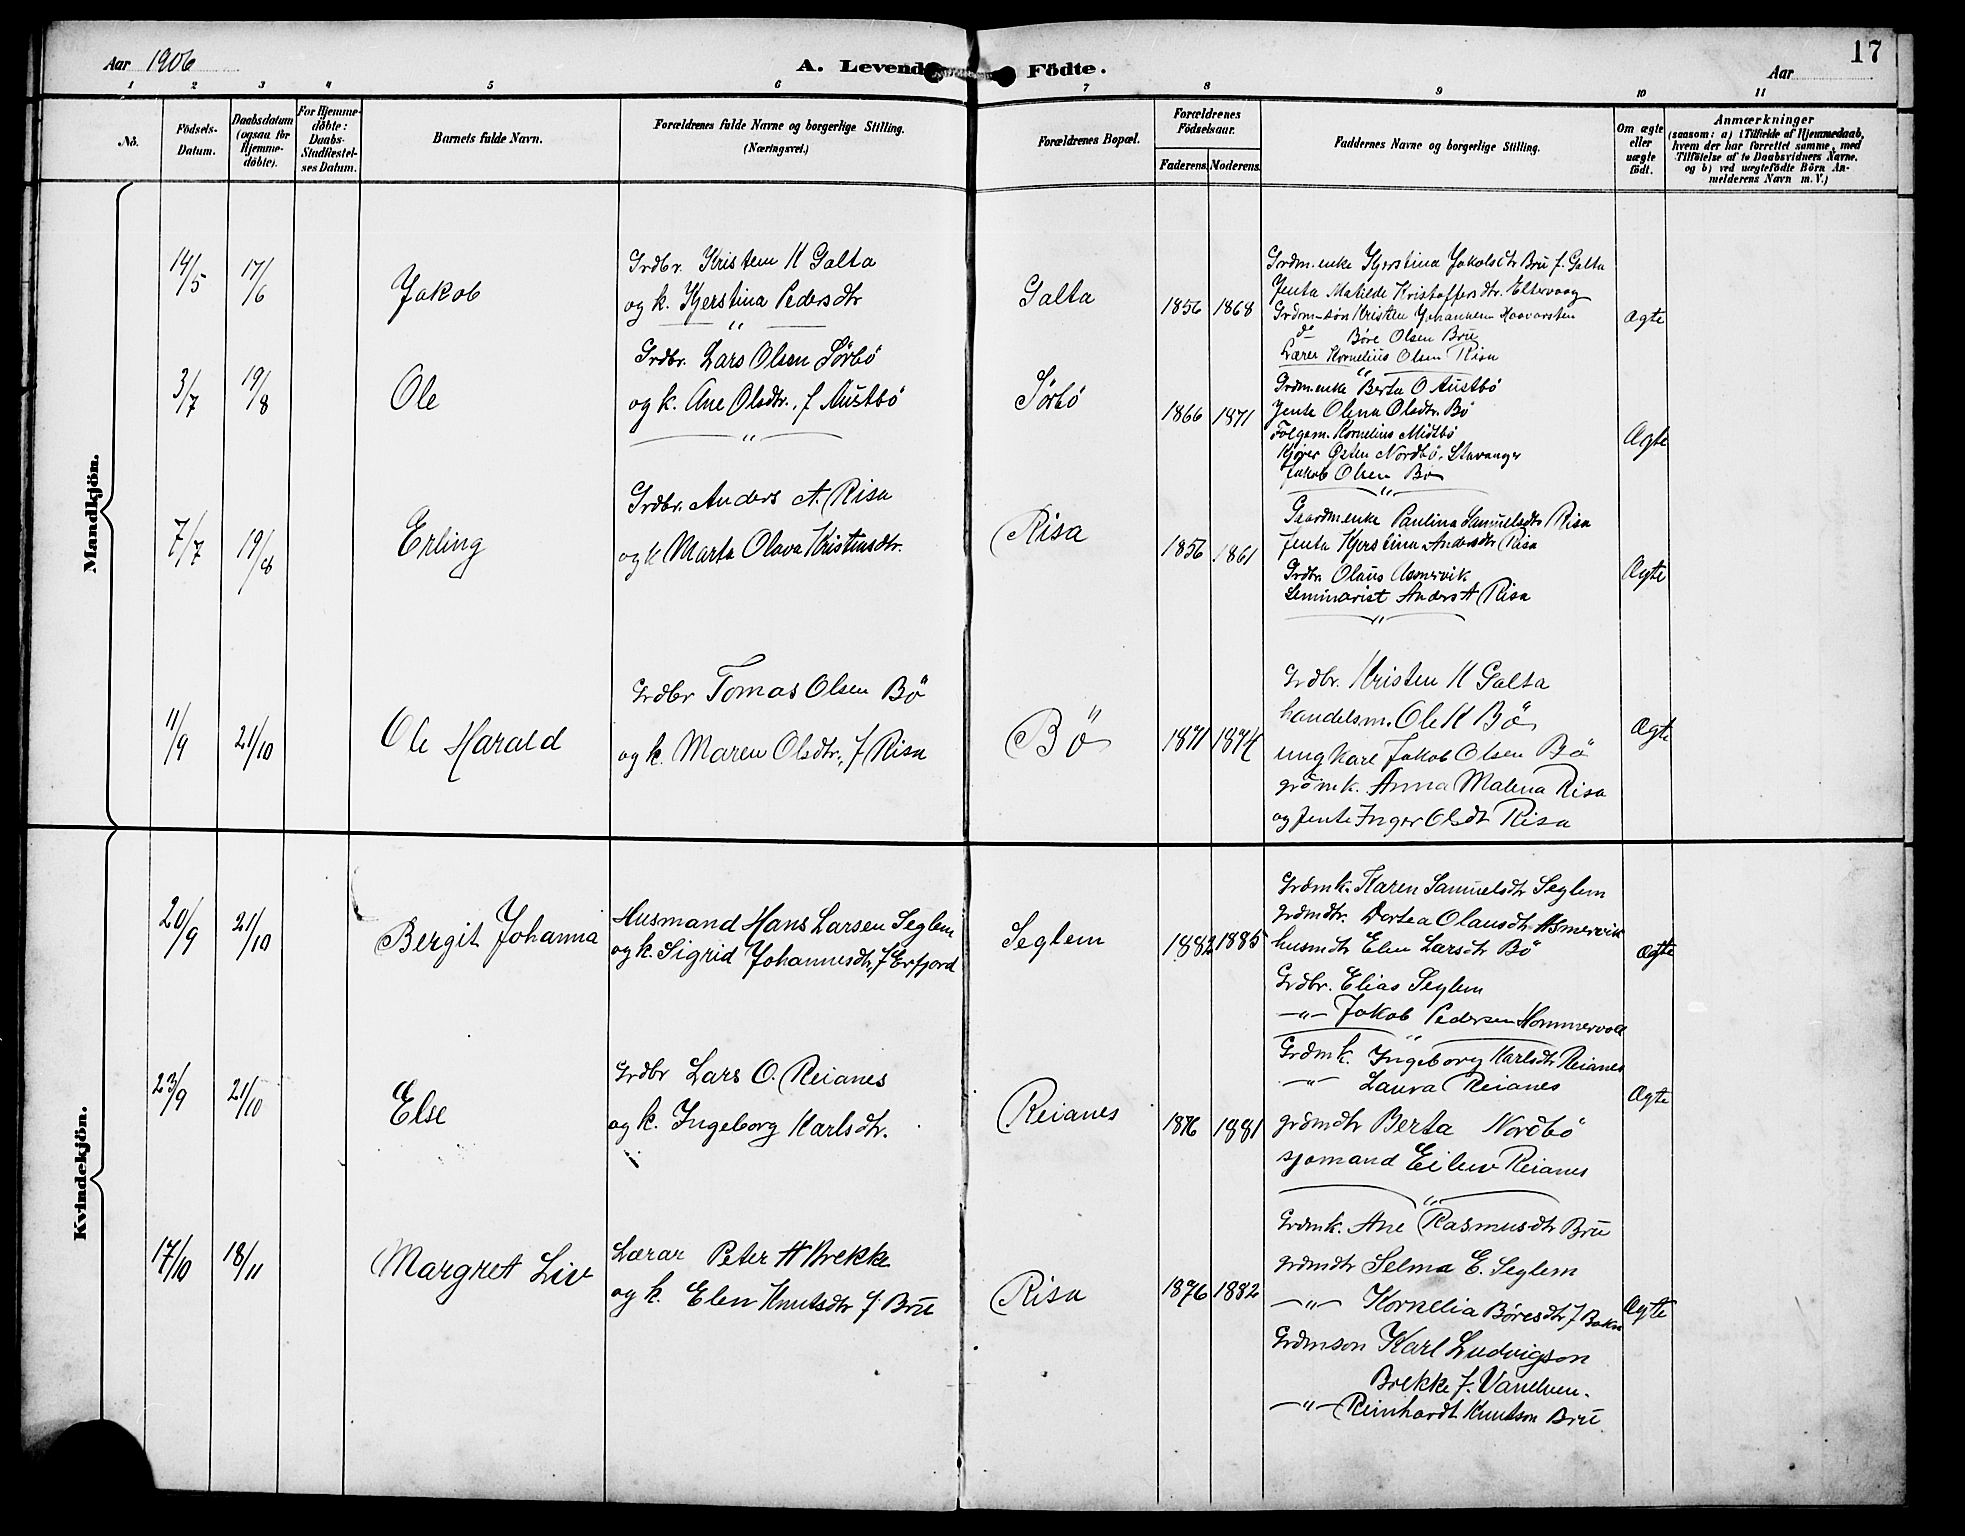 17
Aar 1906
A. Levende Födte.
Aar
1 2 3 4 5 6 7 8 9 10 11
No.
Födsels-Datum.
Daabsdatum (ogsaa for Hjemmedöbte).
For Hjemmedöbte: Daabs-Stadfestelses Datum.
Barnets fulde Navn.
Forældrenes fulde Navne og borgerlige Stilling. (Næringsvei.)
Forældrenes Bopæl.
Forældrenes Födselsaar.
Faderens. Moderens.
Faddernes Navne og borgerlige Stilling.
Om ægte eller uægte födt.
Anmærkninger
(saasom: a) i Tilfælde af Hjemmedaab,
hvem der har forrettet samme, med
Tilföielse af to Daabsvidners Navne.
og b) ved uægtefödte Börn An-
melderens Navn m. V.)
Mandkjön.
14/5 17/6 Jakob
Grdbr. Kristen K Galta
og k. Kjerstina Pedersdtr
Galta 1856 1868
Grdm.enke Kjerstina Jakobsdtr Bru f. Galta
Jenta Matilde Kristoffersdtr. Eltervaag
Grdm-søn Kristen Johannesen Haavarsten
do Børe Olsen Bru
Lærer Kornelius Olsen Risa
Ægte
3/7 19/8 Ole
Grdbr. Lars Olsen Sørbö
og k. Ane Olsdtr. f Austbö
Sørbö 1866 1871
Grdm.enke Berta O Austbö
Jente Olena Olsdtr. Bö
Folgem. Kornelius Midtbö
Kjörer Østen Nordbö, Stavanger
Jakob Olsen Bö
Ægte
7/7 19/8 Erling
Grdbr. Anders A. Risa
og k Marta Olava Kristensdtr.
Risa 1856 1861
Gaardm.enke Paulina Samuelsdtr Risa
Jenta Kjerstina Andersdtr Risa
Grdbr. Olaus Asmervik
Seminarist Anders A Risa
Ægte
11/9 21/10 Ole Harald
Grdbr Tomas Olsen Bö
og k. Maren Olsdtr. f Risa
Bö 1871 1874
Grdbr. Kristen K Galta
handelsm. Ole K Bö
ungkarl Jakob Olsen Bö
grdmk. Anna Malena Risa
og jente Inger Olsdtr Risa
Ægte
Kvindekjön.
20/9 21/10 Bergit Johanna
Husmand Hans Larsen Seglem
og k. Sigrid Johannesdtr, f Erfjord
Seglem 1882 1885
Grdmk. Karen Samuelsdtr Seglem
grdmdtr. Dortea Olausdtr Asmervik
husmdtr Elen Larsdtr Bö
Grdbr. Elias Seglem
—"— Jakob Pedersen Hommervold
Ægte
23/9 21/10 Else
Grdbr Lars O. Reianes
og k. Ingeborg Karlsdtr.
Reianes 1876 1881
Grdmk. Ingeborg Karlsdtr Reianes
—"— Laura Reianes
grdmdtr Berta Nordbö
sjomand Eilev Reianes
Ægte
17/10 18/11 Margret Liv
Lærar Peter H Brekke
og k. Elen Knutsdtr f. Bru
Risa 1876 1882
Grdmk. Ane Rasmusdtr Bru
grdmdtr Selma E. Seglem
—"— Kornelia Børesdtr f Bokn
Grdmson Karl Ludvigson
Brekke f. Vanelven.
—"— Reinhardt Knutson Bru
Ægte